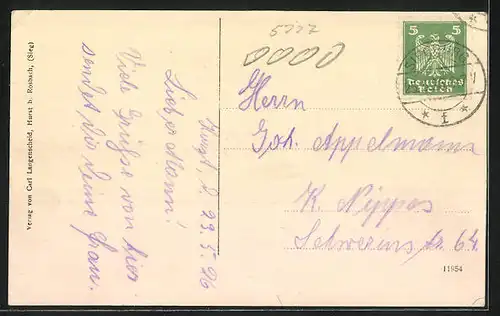 5337
0000
5 5
Deutsches
Reich
Herrn
Joh. Appelmann
K. Nippes
Schwerinstr. 64
Hurst, d. 23.5.26
Lieber Mann!
Viele Grüsse von hier
sendet dir deine Frau.
Verlag von Carl Langenscheid, Hurst b. Rosbach, (Sieg)
11954